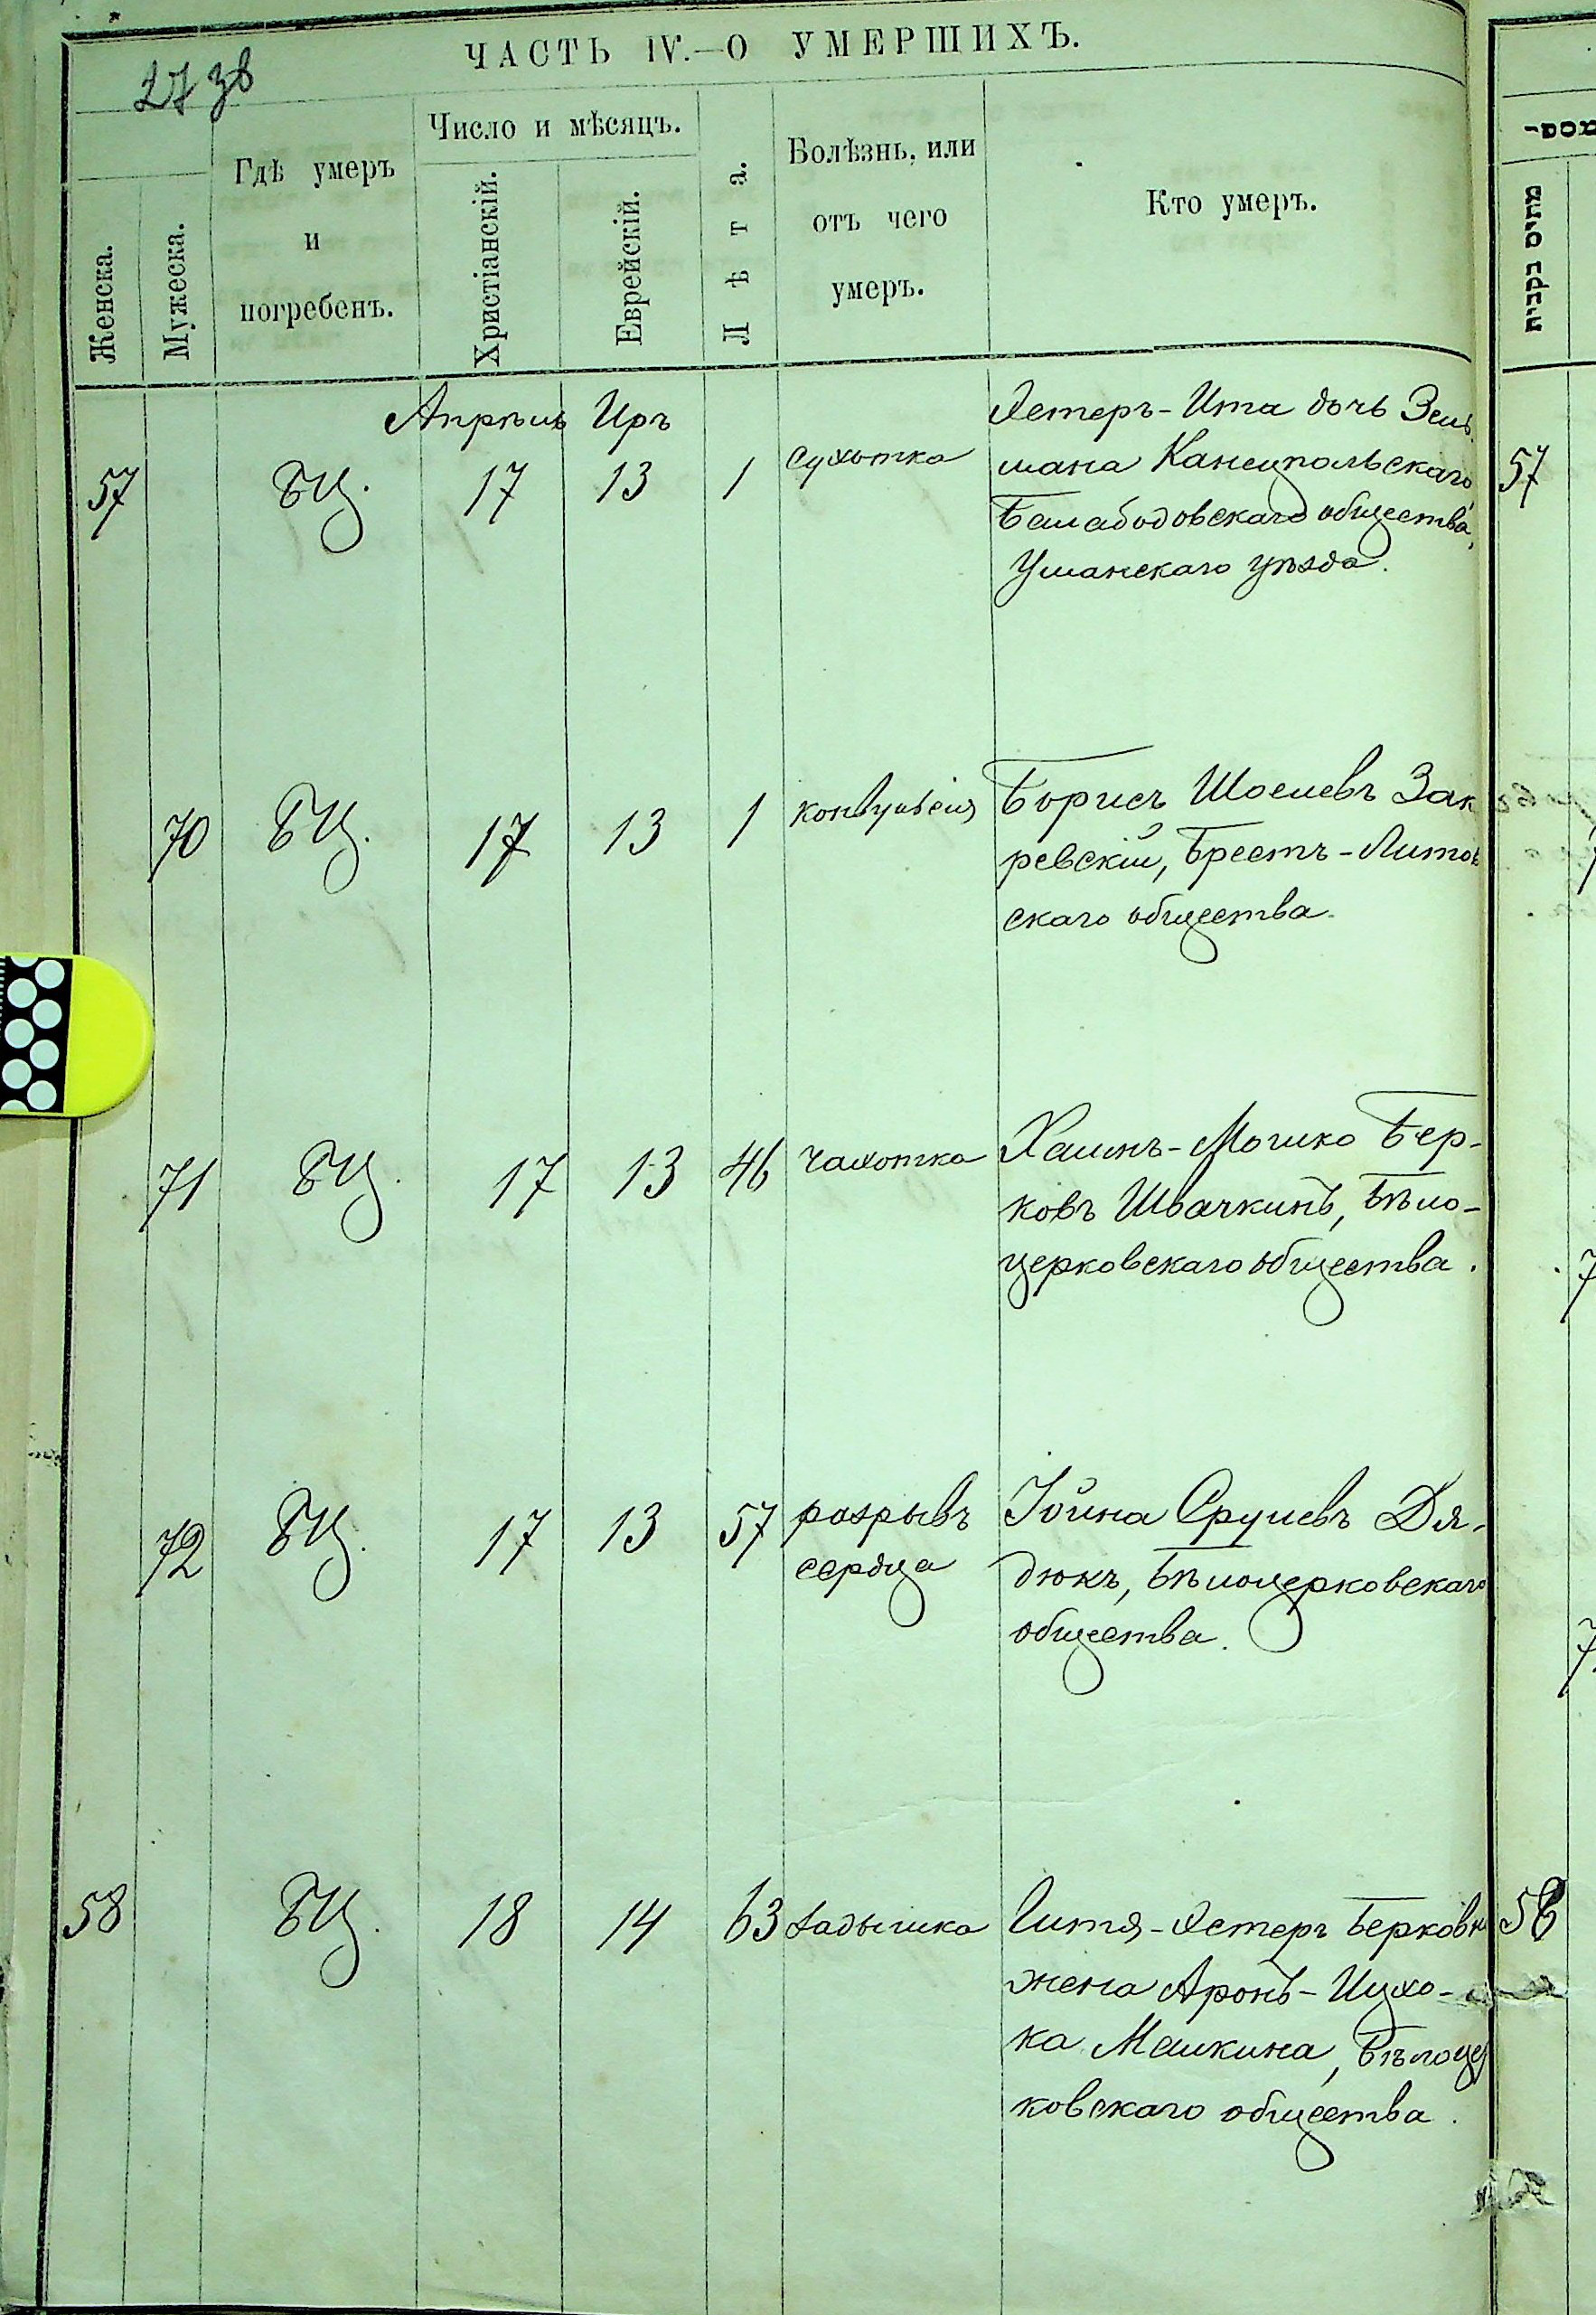 ЧАСТЬ IV.—О УМЕРШИХЪ.
27 зв
Женска.
Мужеска.
Гдѣ умеръ
и
погребенъ.
Число и мѣсяцъ.
Христіанскій.
Еврейскій.
Лѣта.
Болѣзнь, или
отъ чего
умеръ.
Кто умеръ.
מתים בקבית
Апрѣль Иръ
57 БЦ. 17 13 1 сухотка
Эстеръ-Ита дочь Зель
мана Канецпольскаго,
Уманскаго уѣзда.
57
70 БЦ. 17 13 1 конвульсія
Борисъ Шоелевъ Зак
ревскій, Брестъ-Литов
скаго общества.
71 БЦ. 17 13 46 чахотка
Хаимъ-Мошко Бер-
ковъ Швачкинъ, Бѣло-
церковскаго общества.
72 БЦ. 17 13 57 разрывъ
сердца
Іойна Срулевъ Дя-
дюкъ, Бѣлоцерковскаго
общества.
58 БЦ. 18 14 63 задышка
Гитля-Эстеръ Берковн
жена Аронъ-Ицхо-
ка Малкина, Бѣлоцер
ковскаго общества.
58